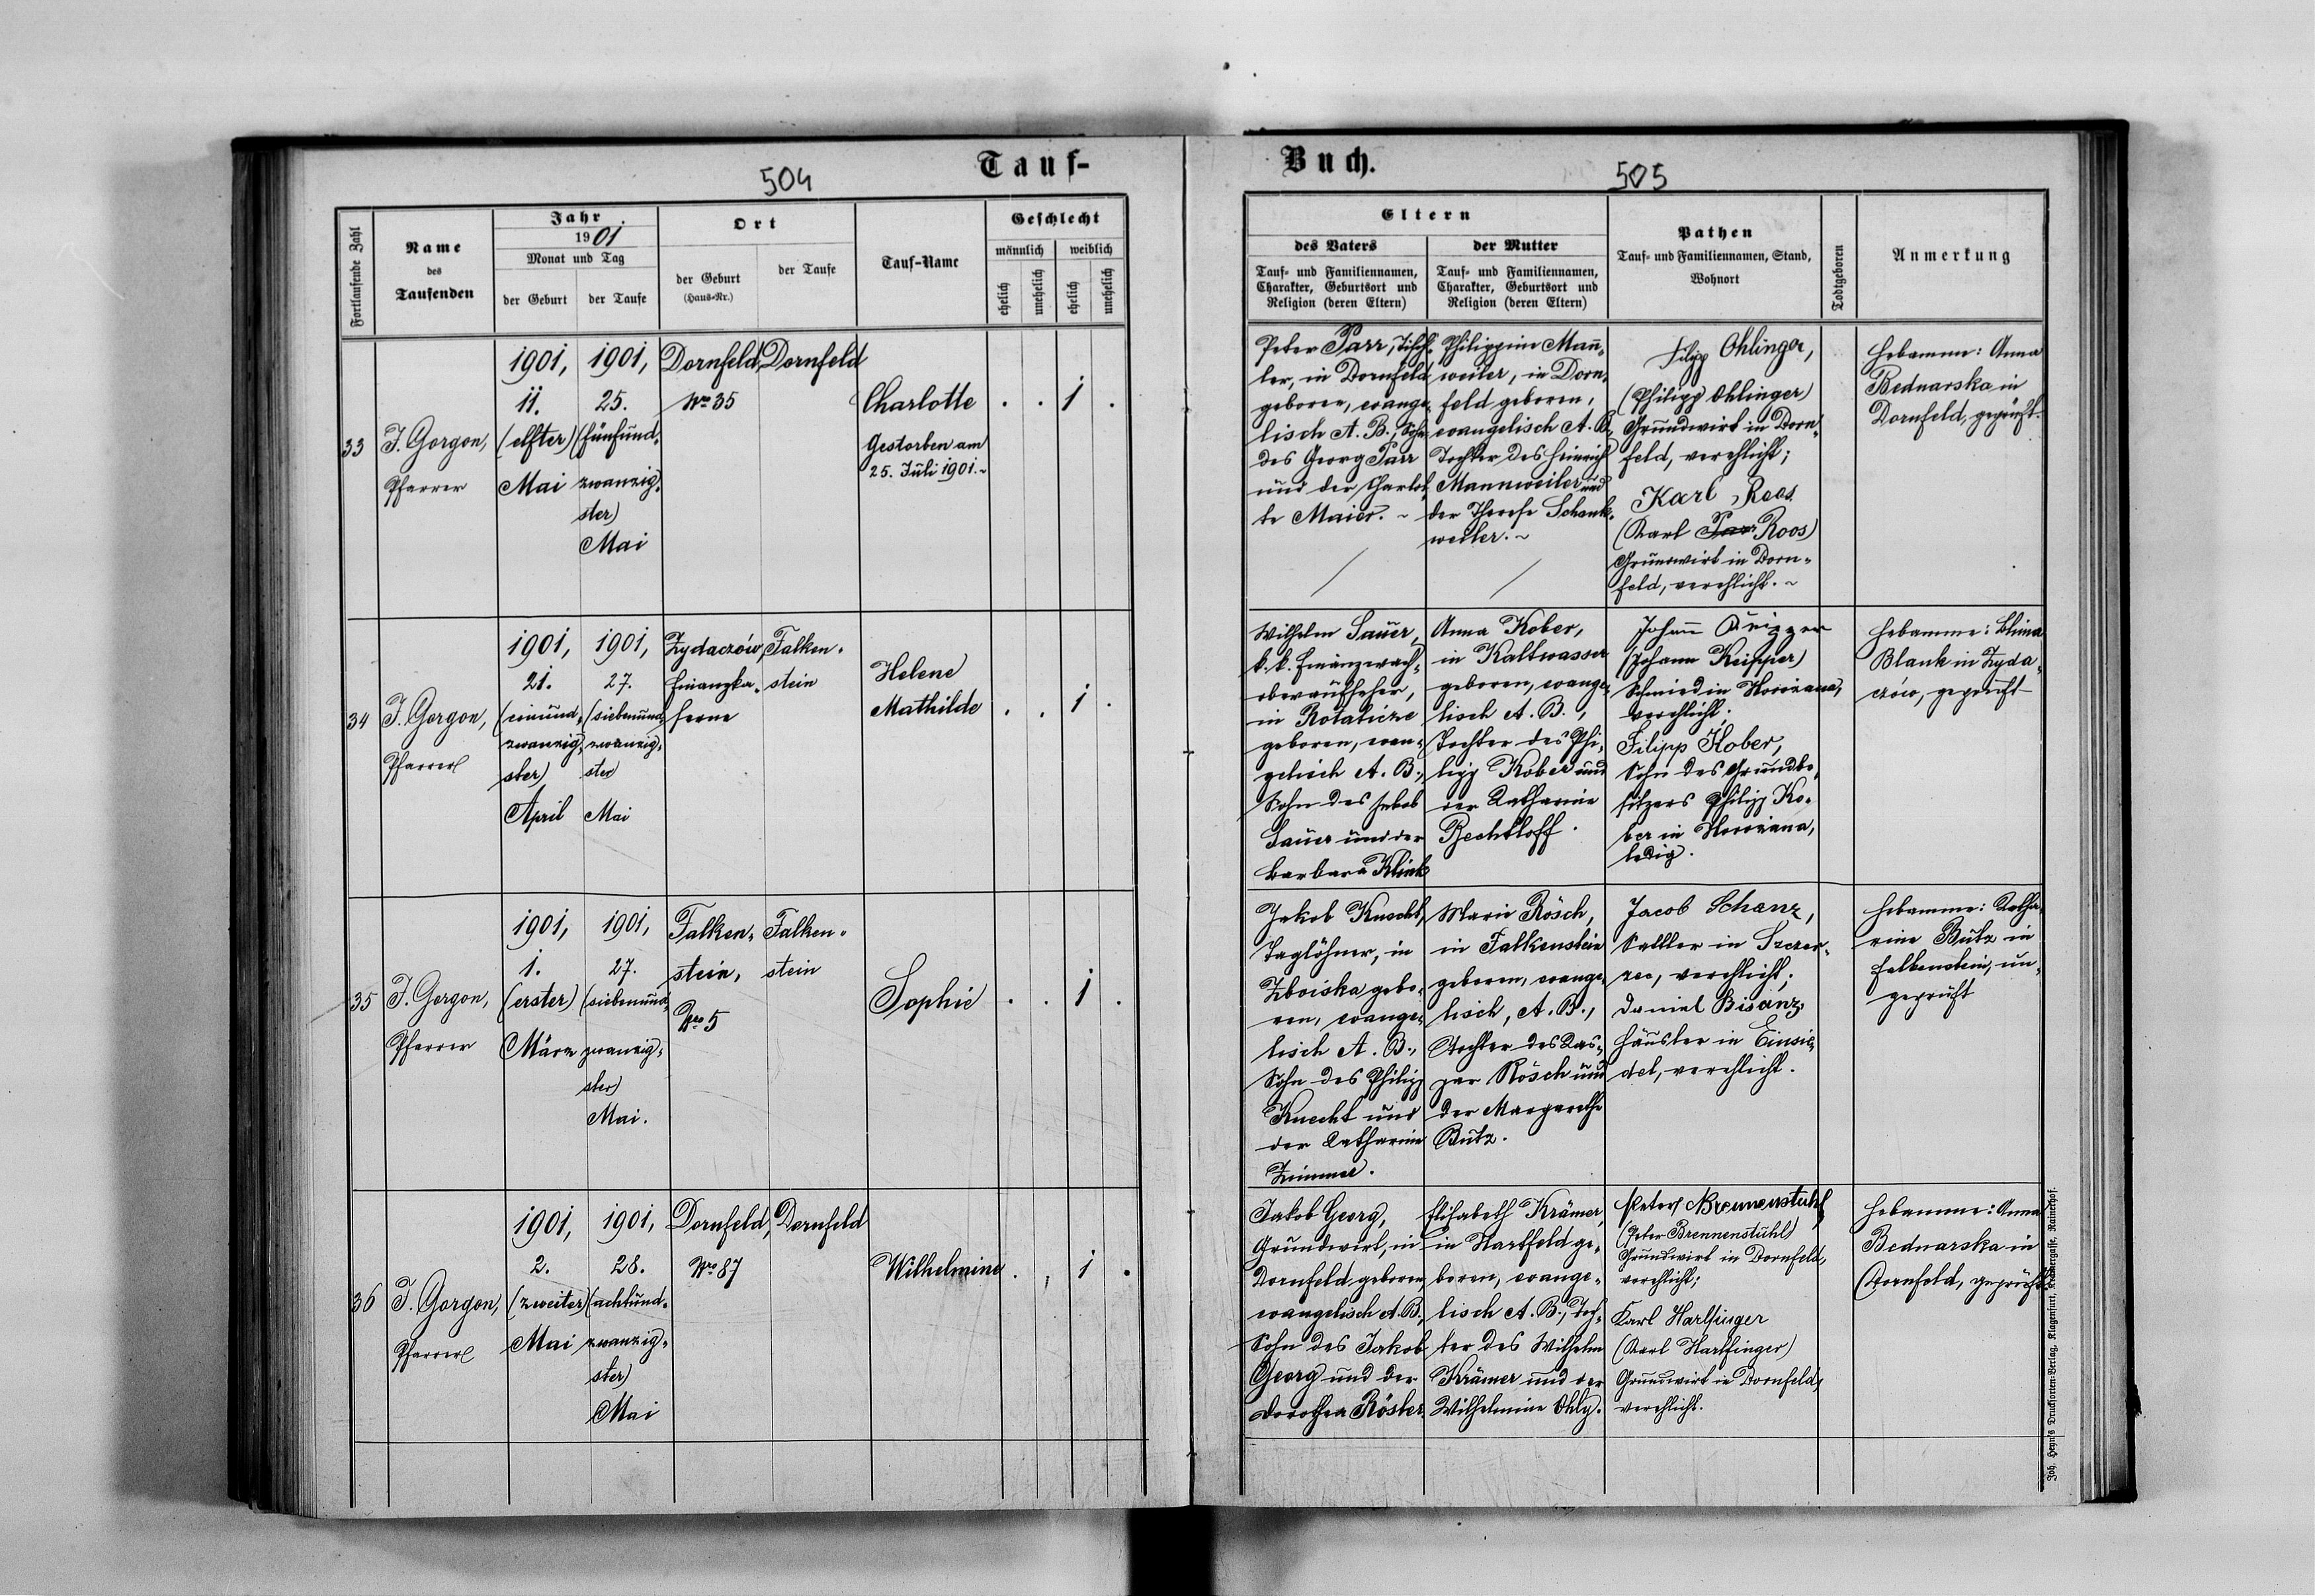 504
Tauf-
Fortlaufende Zahl
Name
des
Taufenden
Jahr
1901
Monat und Tag
der Geburt
der Taufe
Ort
der Geburt
(Haus-Nr.)
der Taufe
Tauf-Name
Geschlecht
männlich
weiblich
ehelich
unehelich
ehelich
unehelich
33
J. Gorgon,
Pfarrer
1901,
11.
(elfter)
Mai
1901,
25.
(fünfund-
zwanzig-
ster)
Mai
Dornfeld,
Nro 35
Dornfeld
Charlotte
Gestorben am
25. Juli 1901.~
. . 1 .
34
J. Gorgon,
Pfarrer
1901,
21.
(einund-
zwanzig-
ster)
April
1901,
27.
(siebenund-
zwanzig-
ster)
Mai
Zydaczów,
Finanzka-
serne
Falken-
stein
Helene
Mathilde
. . 1 .
35
J. Gorgon,
Pfarrer
1901,
1.
(erster)
März
1901,
27.
(siebenund-
zwanzig-
ster)
Mai.
Falken-
stein,
Nro 5
Falken-
stein
Sophie
. . 1 .
36
J. Gorgon,
Pfarrer
1901,
2.
(zweiter)
Mai
1901,
28.
(achtund-
zwanzig-
ster)
Mai
Dornfeld,
Nro 87
Dornfeld
Wilhelmine
. . 1 .
Buch.
505
Eltern
des Vaters
Tauf- und Familiennamen,
Charakter, Geburtsort und
Religion (deren Eltern)
der Mutter
Tauf- und Familiennamen,
Charakter, Geburtsort und
Religion (deren Eltern)
Pathen
Tauf- und Familiennamen, Stand,
Wohnort
Todtgeboren
Anmerkung
Peter Parr, Tisch-
ler, in Dornfeld
geboren, evange-
lisch A. B., Sohn
des Georg Parr
und der Charlot-
te Maier. ~
Philippine Mann-
weiler, in Dorn-
feld geboren,
evangelisch A. B.,
Tochter des Heinrich
Mannweiler und
der Therese Schank-
weiler. ~
Filipp Ohlinger,
(Philipp Ohlinger)
Grundwirt in Dorn-
feld, verehlicht;
Karl Roos
(Karl Parr Roos)
Grundwirt in Dorn-
feld, verehlicht. ~
Hebamme: Anna
Bednarska in
Dornfeld, geprüft
Wilhelm Sauer,
k. k. Finanzwach-
oberaufseher,
in
geboren, evan-
gelisch A. B.,
Sohn des Jakob
Sauer und der
Barbara Klink
Anna Kober,
in Kaltwasser
geboren, evange-
lisch A. B.,
Tochter des Phi-
lipp Kober und
der Katharine
Bechtloff.
Johann
(Johann Keipper)
Schmied in Horożana,
verehlicht;
Filipp Kober,
Sohn des Grundbe-
sitzers Philipp Ko-
ber in Horożana,
ledig.
Hebamme:
Blank in Zyda-
czów, geprüft
Jakob Knecht,
Taglöhner, in
Zboiska gebo-
ren, evange-
lisch A. B.,
Sohn des Philipp
Knecht und
der Catharine
Zimmer.
Marie Rösch,
in Falkenstein
geboren, evange-
lisch, A. B.,
Tochter des Kas-
par Rösch und
der Margarethe
Butz.
Jacob Schanz,
Sattler in Szczer-
zec, verehlicht;
Daniel Bisanz,
Häusler in Einsie-
del, verehlicht.
Hebamme: Katha-
rine Butz in
Falkenstein, un-
geprüft
Jakob Georg,
Grundwirt, in
Dornfeld geboren,
evangelisch A. B.,
Sohn des Jakob
Georg und der
Dorothea Röster.
Elisabeth Krämer,
in Hartfeld ge-
boren, evange-
lisch A. B., Toch-
ter des Wilhelm
Krämer und der
Wilhelmine Ohly.
Peter Brennenstuhl
(Peter Brennenstuhl)
Grundwirt in Dornfeld,
verehlicht;
Karl Harlfinger
(Karl Harlfinger)
Grundwirt in Dornfeld,
verehlicht.
Hebamme: Anna
Bednarska in
Dornfeld, geprüft
Joh. Heyn's Drucksorten-Verlag, Klagenfurt, Kramergasse, Rainerhof.